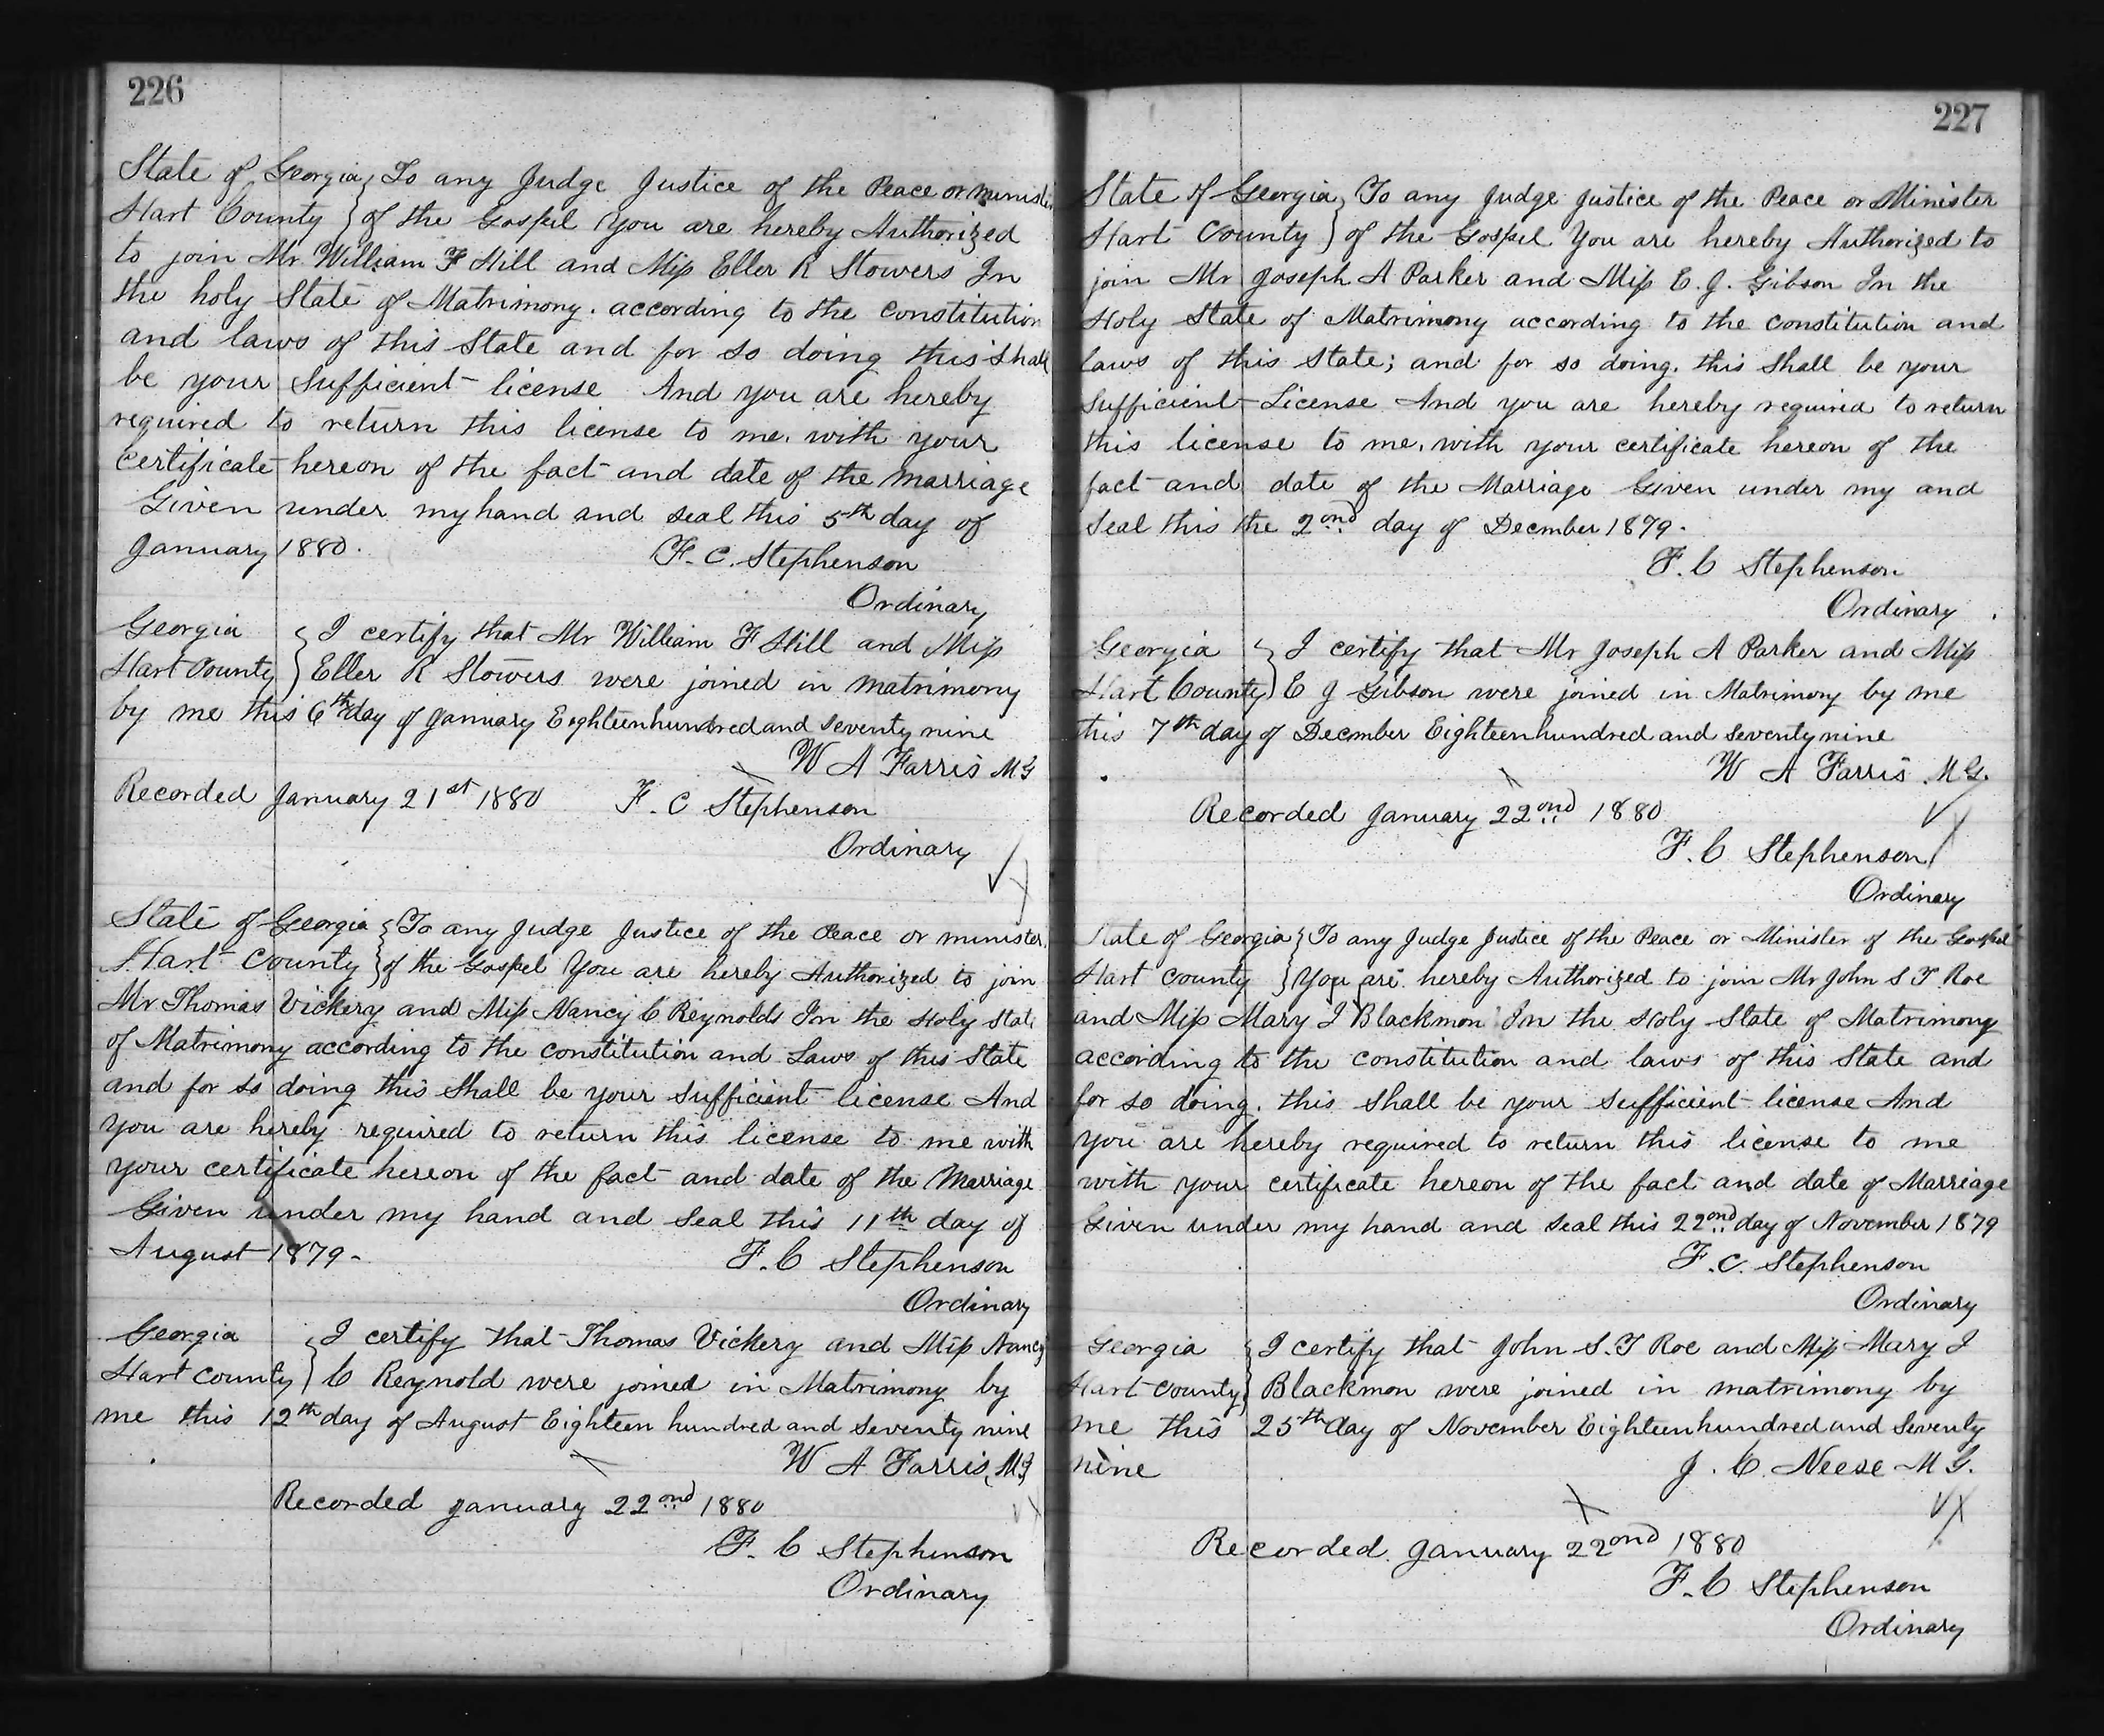 226
State of Georgia } To any Judge Justice of the Peace or minister
Hart County } of the Gospel you are hereby Authorized
to join Mr William F Hill and Miss Eller R Stowers In
the holy State of Matrimony. according to the constitution
and laws of this State and for so doing this shall
be your sufficient license And you are hereby
required to return this license to me. with your
certificate hereon of the fact and date of the marriage
Given under my hand and seal this 5th day of
January 1880. F. C. Stephenson
Ordinary
Georgia } I certify that Mr William F Hill and Miss
Hart County } Eller R Stowers were joined in matrimony
by me this 6th day of January Eighteen hundred and seventy nine
W A Farris M G
Recorded January 21st 1880 F. C Stephenson
Ordinary
State of Georgia } To any Judge Justice of the Peace or minister
Hart County } of the Gospel You are hereby Authorized to join
Mr Thomas Vickery and Miss Nancy C Reynolds In the Holy State
of Matrimony according to the constitution and Laws of this State
and for so doing this Shall be your sufficient license And
you are hereby required to return this license to me with
your certificate hereon of the fact and date of the Marriage
Given under my hand and Seal this 11th day of
August 1879- F. C Stephenson
Ordinary
Georgia } I certify that Thomas Vickery and Miss Nancy
Hart County } C Reynold were joined in Matrimony by
me this 12th day of August Eighteen hundred and seventy nine
W A Farris, M G
Recorded January 22ond 1880
F. C Stephenson
Ordinary
227
State of Georgia } To any Judge Justice of the Peace or Minister
Hart County } of the Gospel You are hereby Authorized to
join Mr Joseph A Parker and Miss E. J. Gibson In the
Holy State of Matrimony according to the constitution and
laws of this State; and for so doing. this Shall be your
Sufficient License And you are hereby required to return
this license to me. with your certificate hereon of the
fact and date of the Marriage Given under my and
Seal this the 2ond day of Decmber 1879.
F. C Stephenson
Ordinary
Georgia } I certify that Mr Joseph A Parker and Miss
Hart County } E J Gibson were joined in Matrimony by me
this 7th day of Decmber Eighteen hundred and seventy nine
W A Farris M G.
Recorded January 22ond 1880
F. C Stephenson
Ordinary
State of Georgia } To any Judge Justice of the Peace or Minister of the Gospel
Hart County } You are hereby Authorized to join Mr John S T Roe
and Miss Mary J Blackmon In the Holy State of Matrimony
according to the constitution and laws of this State and
for so doing. this Shall be your sufficient license And
you are hereby required to return this license to me
with your certificate hereon of the fact and date of Marriage
Given under my hand and seal this 22ond day of November 1879
F. C. Stephenson
Ordinary
Georgia } I certify that John S. T Roe and Miss Mary J
Hart County } Blackmon were joined in matrimony by
me this 25th day of November Eighteen hundred and Seventy
nine J. C. Neese M G.
Recorded January 22ond 1880
F. C Stephenson
Ordinary